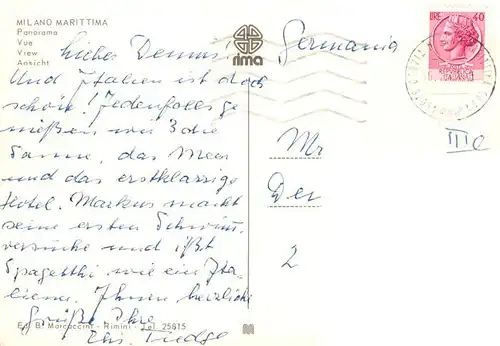 MILANO MARITTIMA
Panorama
Vue
View
Ansicht
rima
LIRE 40
Germania
Und Italien ist doch
schön! Jedenfalls ge
nießen wir 3 die
Sonne, das Meer
und das erstklassige
Hotel. Markus macht
seine ersten Schwimm
versuche und ißt
Spagetthi wie ein Ita-
liener. Ihnen herzliche
Grüße Ihre
Mr
Der
2
III e
Ed. B. Marcaccini - Rimini - Tel. 25815